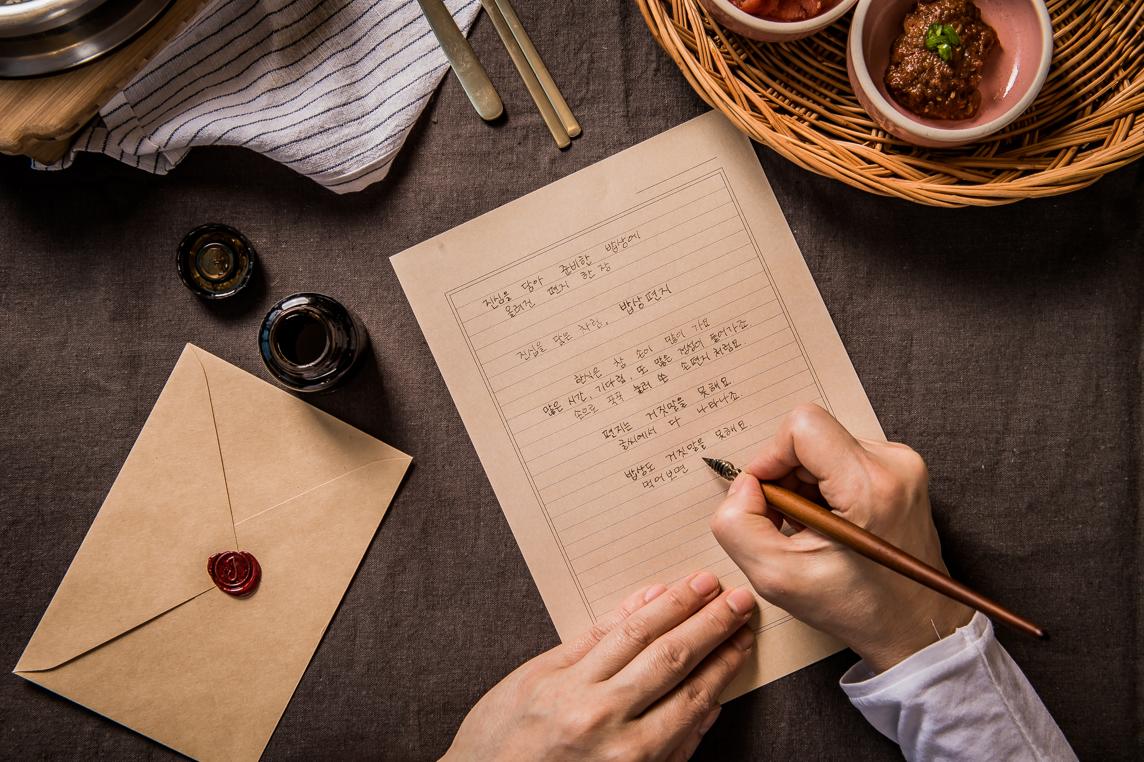 진심을 담아 준비한 밥상에
올려진 편지 한 장
진심을 닮은 차림, 밥상편지
한식은 참 손이 많이 가요
많은 시간, 기다림, 또 많은 정성이 들어가죠
손으로 꾹꾹 눌러 쓴 손편지처럼요.
편지는 거짓말을 못해요
글씨에서 다 나타나죠.
밥상도 거짓말을 못해요
먹어보면